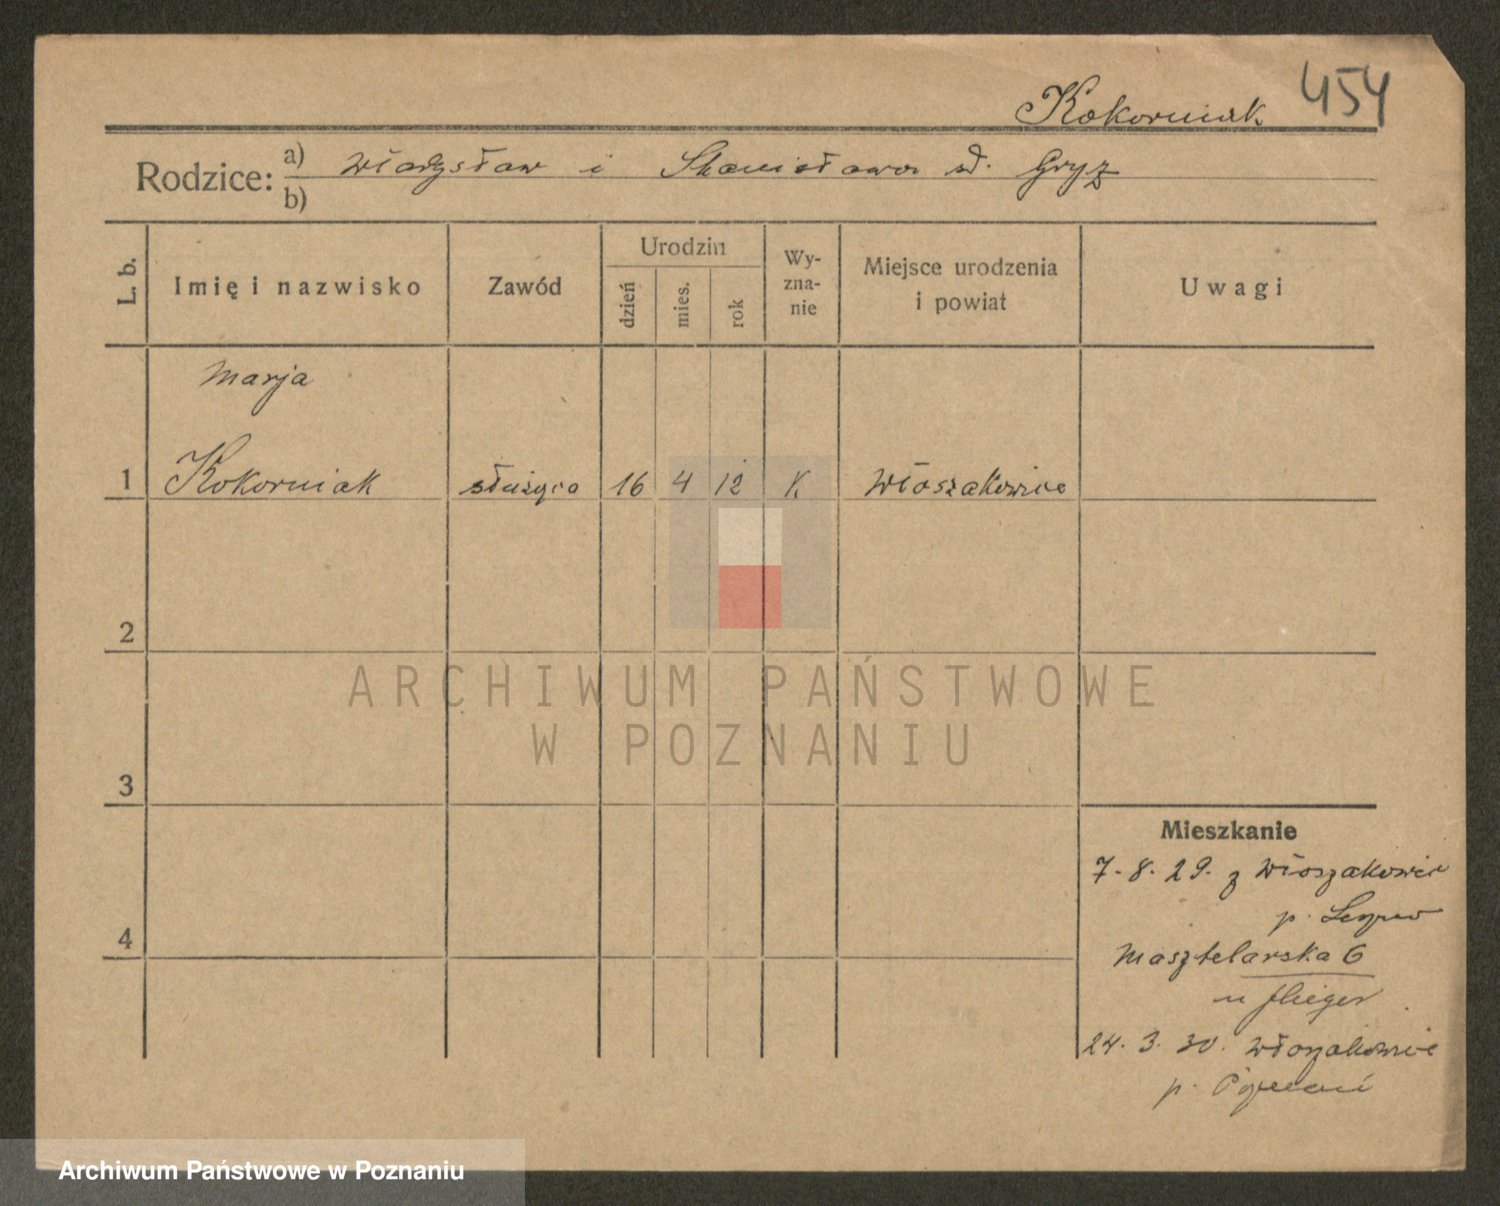 454
Kokorniak
Rodzice: a) Władysław i Stanisława d. Gryz
b)
L. b.
Imię i nazwisko
Zawód
Urodzin
dzień
mies.
rok
Wy-
zna-
nie
Miejsce urodzenia
i powiat
Uwagi
Marja
1 Kokorniak służąca 16 4 12 K Włoszakowice
2
ARCHIWUM PAŃSTWOWE
W POZNANIU
3
Mieszkanie
7. 8. 29. z Włoszakowic
p.
4
Masztelarska 6
u Flieger
24. 3. 30. Włoszakowice
p.
Archiwum Państwowe w Poznaniu